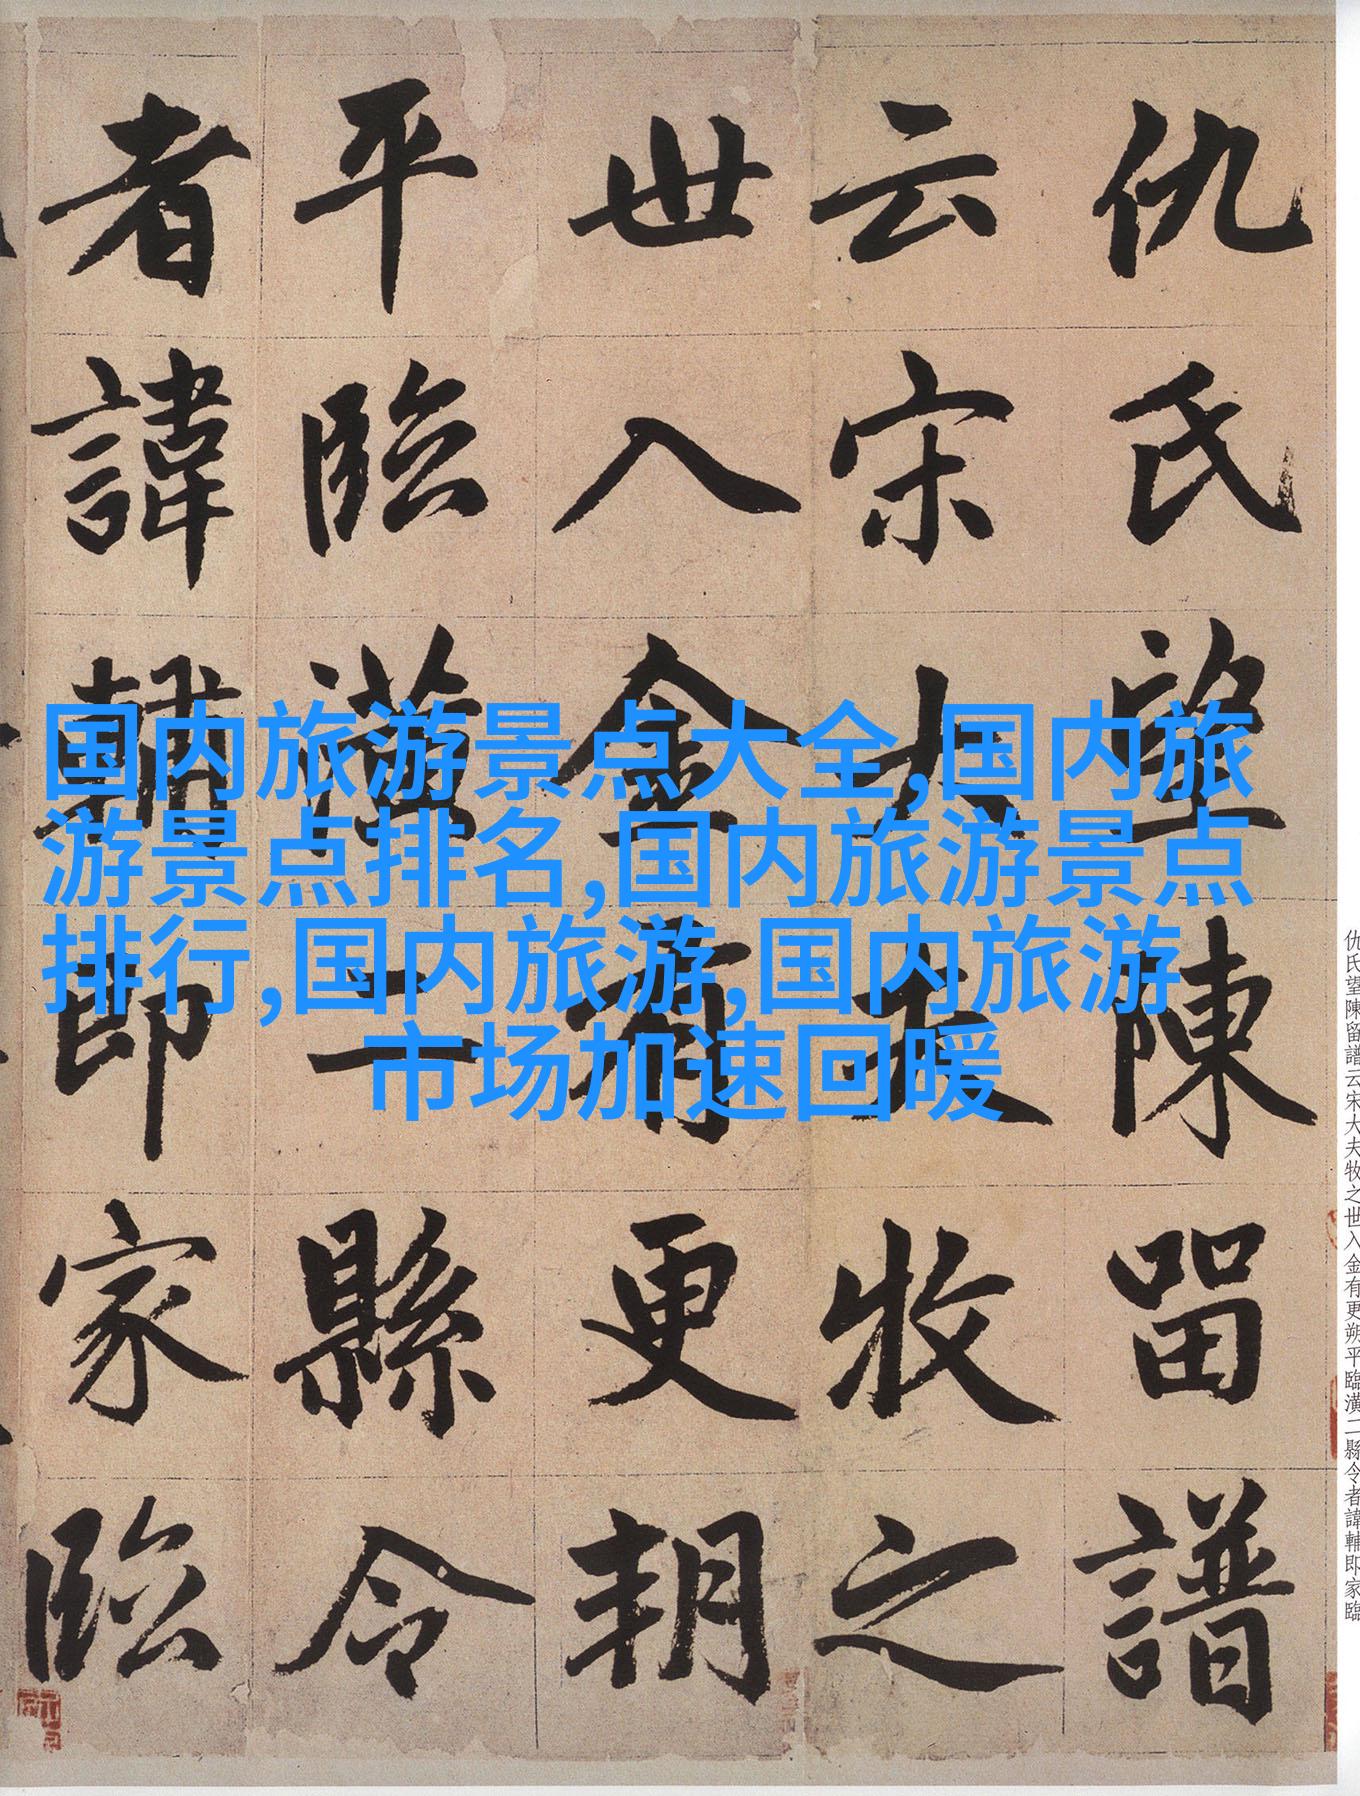 仇氏望陳留譜
云宋大夫牧之
世入金有更朔
平臨潢二縣令
者諱輔即家臨
国内旅游景点大全,国内旅
游景点排名,国内旅游景点
排行,国内旅游,国内旅游
市场加速回暖
仇氏望陳留譜云宋大夫牧之世入金有更朔平臨潢二縣令者諱輔即家臨